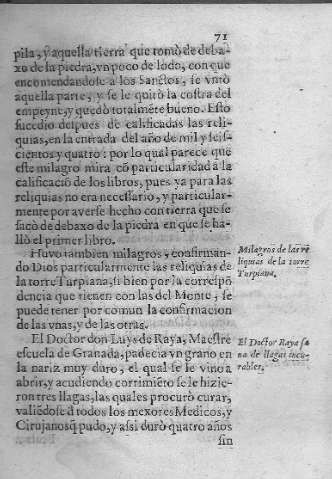 71
pila, y aquella tierra que tomò de deba-
xo de la piedra, vn poco de lodo, con que
encomendandose a los Sanctos, se vntò
aquella parte, y se le quitò la costra del
empeyne, y quedò totalmẽte bueno. Esto
sucedio despues de calificadas las reli-
quias, en la entrada del año de mil y seis-
cientos y quatro: por lo qual parece que
este milagro mira cõ particularidad à la
calificaciõ de los libros, pues ya para las
reliquias no era necessario, y particular-
mente por averse hecho con tierra que se
sacò de debaxo de la piedra en que se ha-
llò el primer libro.
Huvo tambien milagros, confirman-
do Dios particularmente las reliquias de
la torre Turpiana, si bien por la correspõ
dencia que tienen con las del Monte, se
puede tener por comun la confirmacion
de las vnas, y de las otras.
El Doctor don Luys de Raya, Maestre
escuela de Granada, padecia vn grano en
la nariz muy duro, el qual se le vino a
abrir, y acudiendo corrimiẽto se le hizie-
ron tres llagas, las quales procurò curar,
valiẽdose d todos los mexores Medicos, y
Cirujanos q̃ pudo, y assi durò quatro años
sin
Milagros de las re
liquias de la torre
Turpiana.
El Doctor Raya sa
na de llagas incu-
rables.